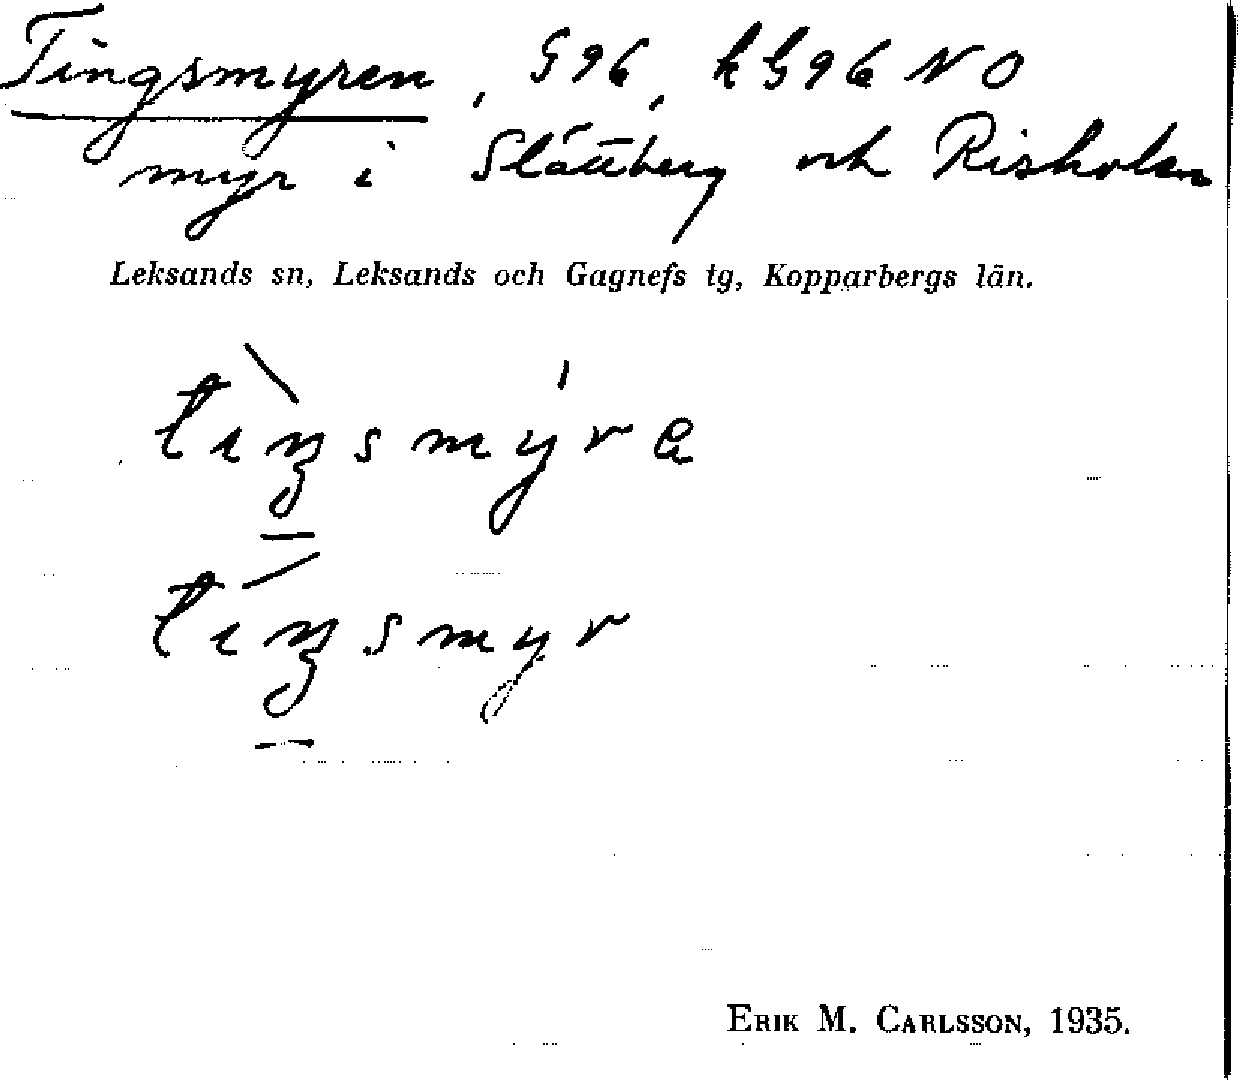 Tingsmyren, G96, k G96 NO
myr i Slättberg och Risholen
Leksands sn, Leksands och Gagnefs tg, Kopparbergs län.
tıŋsmyra
tıŋsmyr
ERIK M. CARLSSON, 1935.